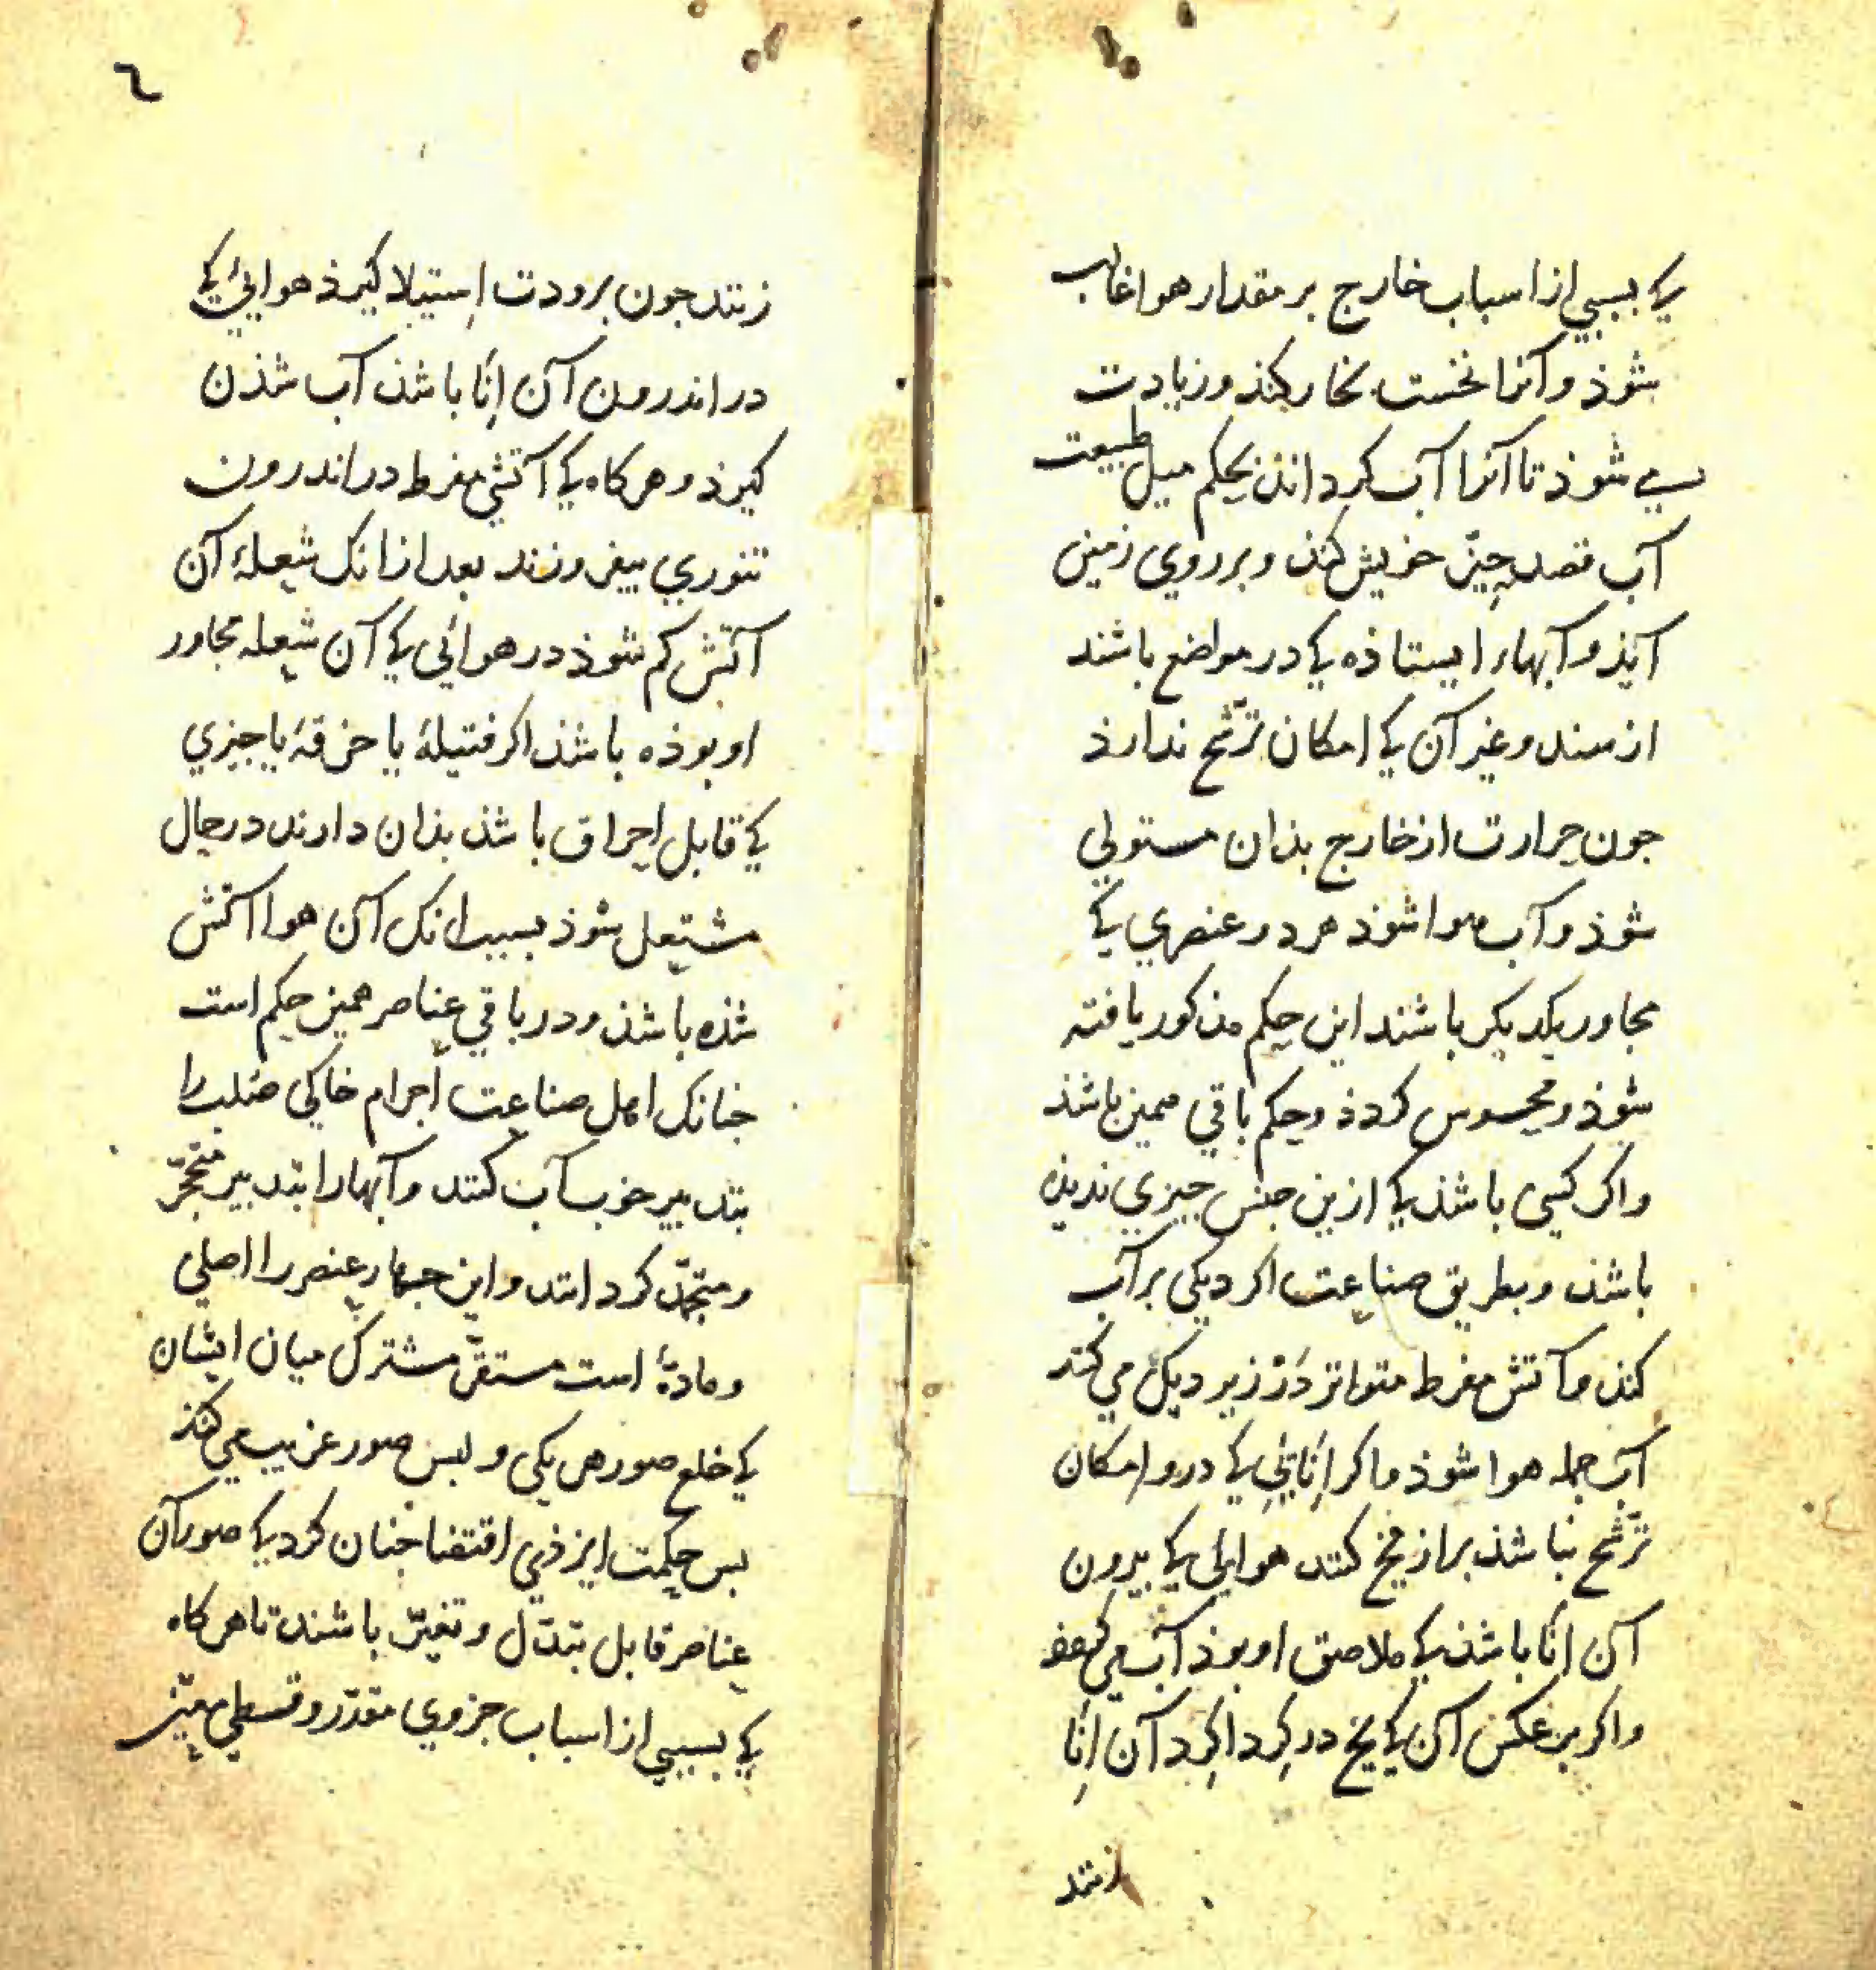 کی بسببی از اسباب خارج بر مقدار هوا غالب
شوذ و آنرا نخست بخار کنذ و زیادت
می شوذ تا آنرا آب کرداند بحکم میل طبیعت
آب قصد حیّز خویش کند و بر روی زمین
آیذ و آبهاء ایستاذه کی در مواضع باشند
از سند و غیر آن کی امکان ترشّح ندارذ
جون حرارت از خارج بذان مستولی
شوذ و آب هوا شوذ هر دو عنصری کی
مجاور یکدیکر باشند این حکم مذکور یافته
شوذ و محسوس کردذ و حکم باقی همین باشذ
واکر کسی باشذ کی ازین جنس جیزی ندیذه
باشذ و بطریق صناعت اکر دیکی بر آب
کند و آتش مفرط متواتر دَرْ زیر دیک می کند
آب جمله هوا شوذ و اکر اِنَایی کی درو امکان
ترشّح نباشذ بر از یخ کنند هوایی کی بیرون
آن اِنَا باشذ کی ملاصق او بوذ آب می شوذ
واکر بر عکس آن کی یخ در کِرد اکِرد آن اِنَا
زنند
٦
زنند جون برودت اِستیلا کیرذ هوائی کی
در اندرون آن اِنَا باشذ آب شذن
کیرذ و هرکاه کی آتشی مفرط در اندرون
تنوری بیفروزند بعد ازانک شعلهٔ آن
آتش کم شوذ در هوائی کی آن شعله مجاور
او بوذه باشذ اکر فتیلهٔ یا خرقهٔ یا جیزی
کی قابل اِحراق باشذ بذان دارند در حال
مشتعل شوذ بسبب انک آن هوا آتش
شذه باشذ و در باقی عناصر همین حکم است
جنانک اهل صناعت اَجرام خاکی صُلب را
بتدبیر خوب آب کنند و آبها را بتدبیر متحجّر
و متجمّد کردانند و این جهار عنصر را اصلی
و مادّهٔ است مستقرّ مشترک میان ایشان
کی خلع صور هر یکی و لبس صور غریب می کنذ
بس حکمت ایزذی اقتضا جنان کرد کی صور آن
عناصر قابل تبدّل و تغیّر باشند تا هرکاه
کی بسببی از اسباب جزوی مقدّر و قسطی معیّن